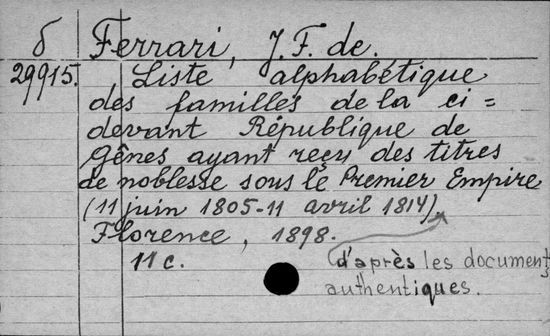 б Ferrari, J. F. de.
29915. Liste alphabétique
des familles de la ci=
devant République de
Gênes ayant reçu des titres
de noblesse sous le Premier Empire
(11 juin 1805-11 avril 1814)
Florence, 1898.
11 c. d'après les documents
authentiques.